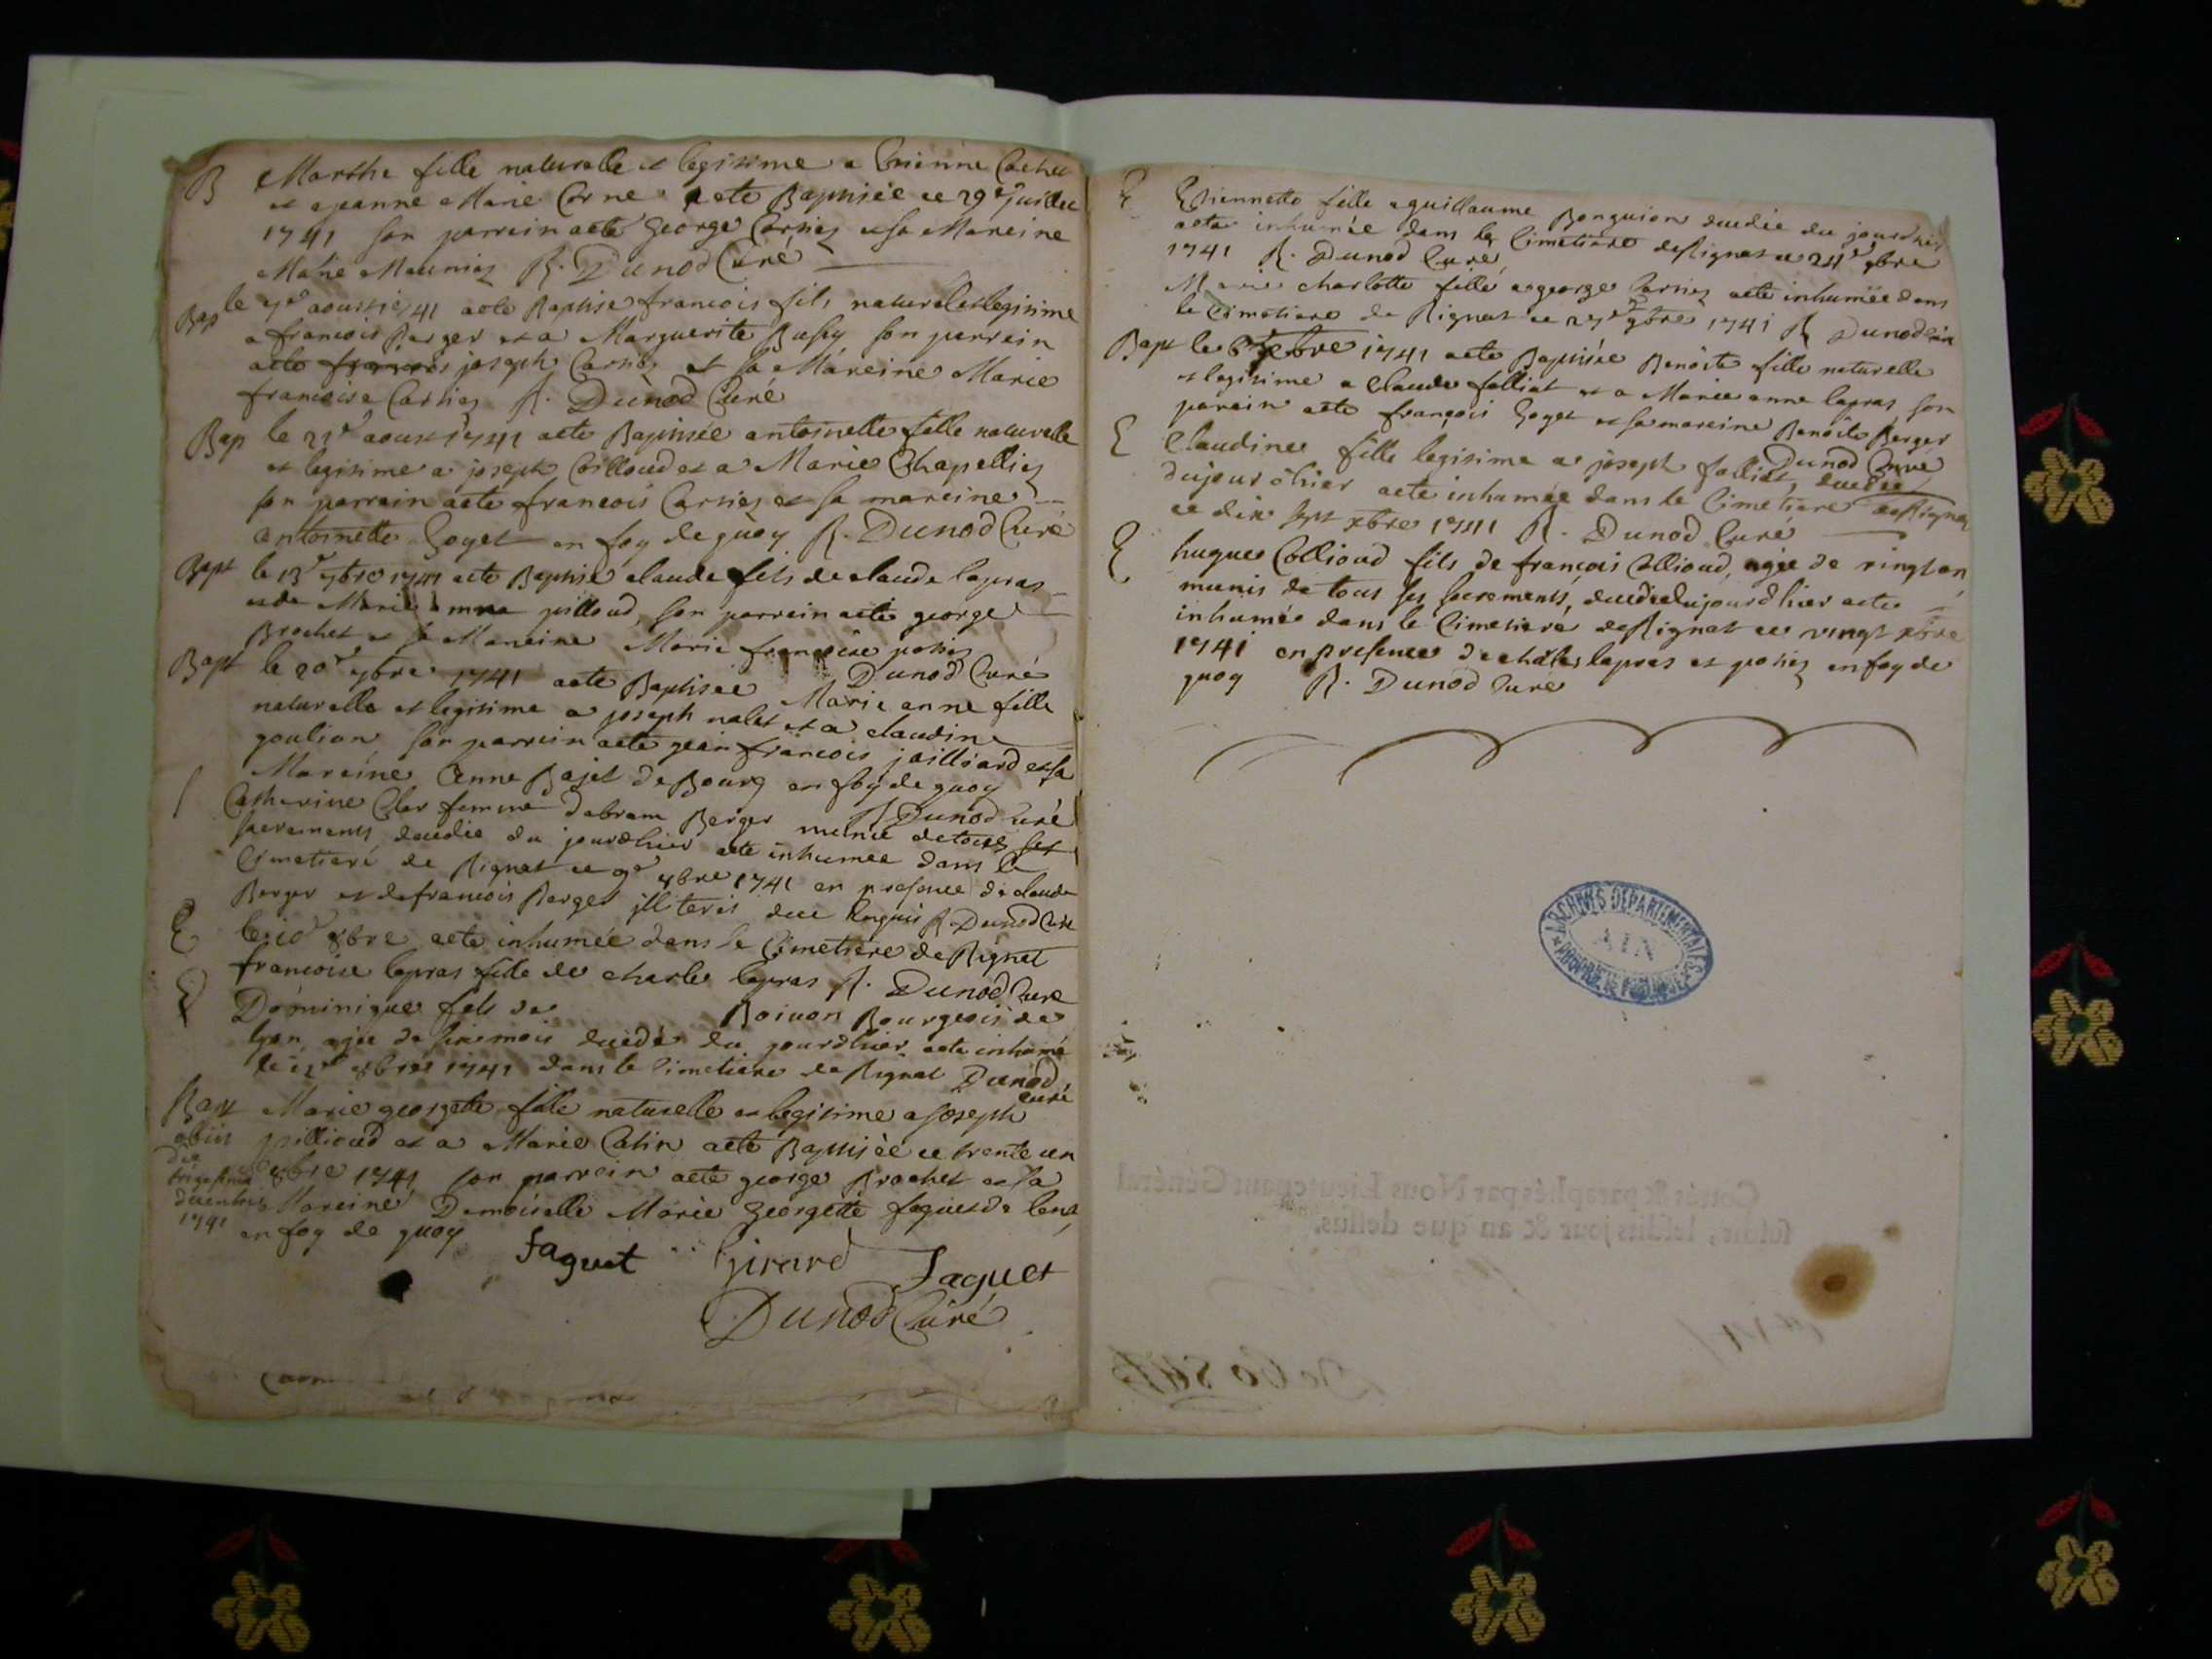 B Marthe fille naturelle et legitime a Etienne Cochet
et a jeanne Marie Corne a ete Baptisée ce 29e juillet
1741 son parrein a eté George Carrier et sa Mareine
Marie Meunier R. Dunod Curé
Bap le 7e aoust 1741 a eté Baptisé francois fils naturel et legitime
a francois Berger et a Marguerite son parrein
a eté francois joseph Carrier et sa Mareine Marie
francoise Carrier R. Dunod Curé
Bap le 21e aoust 1741 a eté Baptisée antoinette fille naturelle
et legitime a joseph Colloud et a Marie Chapellier
son parrain a eté francois Carrier et sa mareine
antoinette Goyet en foy de quoy R. Dunod Curé
Bapt le 13e 7bre 1741 a eté Baptisé claude fils de claude lapras
et de Marie pilloud, son parrein a eté george
Brochet et sa Mareine Marie francoise
Dunod Curé
Bapt le 20e 7bre 1741 a eté Baptisée Marie anne fille
naturelle et legitime a joseph nalet et a claudine
goulion son parrein a eté jean francois jailliard et sa
Mareine Anne Bajet de Bourg en foy de quoy
R Dunod Curé
Catherine Clar femme d'abram Berger munie de tous ses
sacrements, decedée du jourdhier a eté inhumée dans le
Cimetiere de Rignat ce 9e 8bre 1741 en presence de claude
Berger et de francois Berger illiteris R. Dunod Curé
E le 10e 8bre a eté inhumée dans le Cimetiere de Rignat
francoise lapras fille de charle lapras R. Dunod Curé
E Dominique fils de Boiuon Bourgeois de
lyon agée de six mois decedé du jourdhier a eté inhumé
le 12e 8bre 1741 dans le Cimetiere de Rignat Dunod
curé
Bapt Marie georgette fille naturelle et legitime a joseph
obiit pillioud et a Marie Catin a eté Baptisée ce trente un
die
8bre 1741 son parrein a eté george Brochet et sa
trigesima
decembris Mareine Demoiselle Marie Georgette faguet de
1741 en foy de quoy
faguet Girard Faguet
Dunod Curé
E Ethiennette fille a guillaume Bonguion decedée du jourdhier
a eté inhumée dans le Cimetiere de Rignat ce 24e 9bre
1741 R. Dunod Curé
Marie charlotte fille a george Carrier a eté inhumée dans
le Cimetiere de Rignat ce 27e 9bre 1741 R Dunod Curé
Bapt le 1741 a eté Baptisée Benoite fille naturelle
et legitime a Claude folliat et a Marie anne lapras son
parein a eté françois Goyet et sa mareine Benoite Berger
Dunod Curé
E Claudine fille legitime a joseph folliat, decedée
du jour d'hier a eté inhumée dans le Cimetiere de Rignat
ce dix sept xbre 1741 R. Dunod Curé
E hugues Collioud fils de francois Collioud, agée de vingt an
munis de tous ses sacrements, decedé du jourdhier a eté
inhumée dans le Cimetiere de Rignat ce vingt xbre
1741 en presence de charles lapras et en foy de
quoy R. Dunod Curé
ARCHIVES DEPARTEMENTALES
AIN
Cottés & paraphés par Nous Lieutenant Général
susdit, lesdits jour & an que dessus.